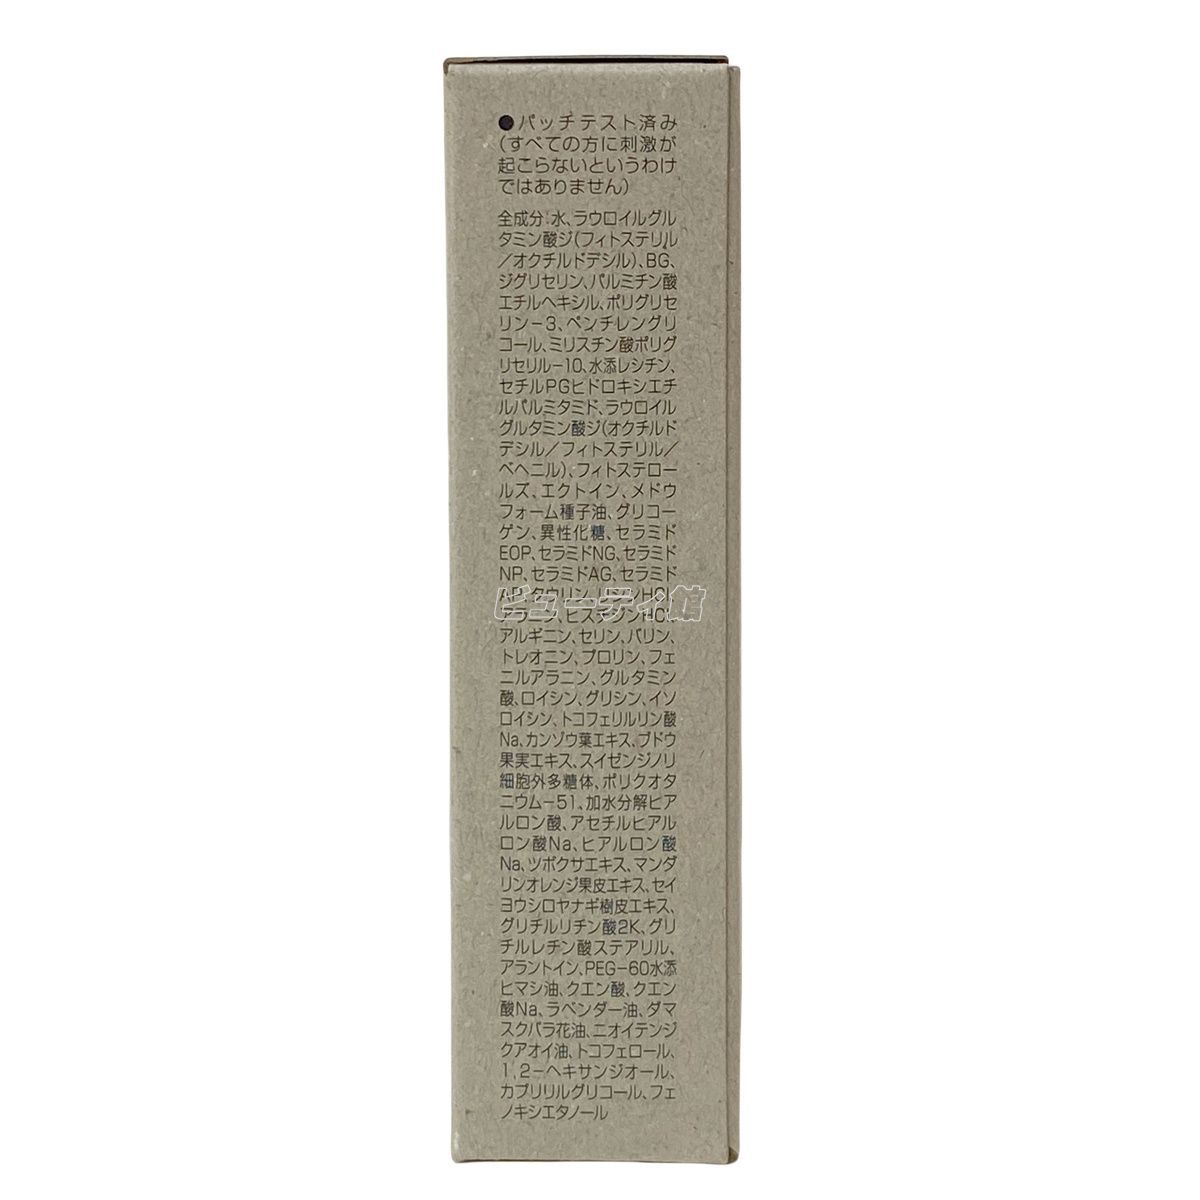 ●パッチテスト済み
(すべての方に刺激が
起こらないというわけ
ではありません)
全成分:水、ラウロイルグル
タミン酸ジ(フィトステリル
/オクチルドデシル)、BG、
ジグリセリン、パルミチン酸
エチルヘキシル、ポリグリセ
リン-3、ペンチレングリ
コール、ミリスチン酸ポリグ
リセリル-10、水添レシチン、
セチルPGヒドロキシエチ
ルパルミタミド、ラウロイル
グルタミン酸ジ(オクチルド
デシル/フィトステリル/
ベヘニル)、フィトステロー
ルズ、エクトイン、メドウ
フォーム種子油、グリコー
ゲン、異性化糖、セラミド
EOP、セラミドNG、セラミド
NP、セラミドAG、セラミド
AP、タウリン、リシンHCl、
ビューティ館
アラニン、ヒスチジンHCl、
アルギニン、セリン、バリン、
トレオニン、プロリン、フェ
ニルアラニン、グルタミン
酸、ロイシン、グリシン、イソ
ロイシン、トコフェリルリン酸
Na、カンゾウ葉エキス、ブドウ
果実エキス、スイゼンジノリ
細胞外多糖体、ポリクオタ
ニウム-51、加水分解ヒア
ルロン酸、アセチルヒアル
ロン酸Na、ヒアルロン酸
Na、ツボクサエキス、マンダ
リンオレンジ果皮エキス、セイ
ヨウシロヤナギ樹皮エキス、
グリチルリチン酸2K、グリ
チルレチン酸ステアリル、
アラントイン、PEG-60水添
ヒマシ油、クエン酸、クエン
酸Na、ラベンダー油、ダマ
スクバラ花油、ニオイテンジ
クアオイ油、トコフェロール、
1,2-ヘキサンジオール、
カプリリルグリコール、フェ
ノキシエタノール